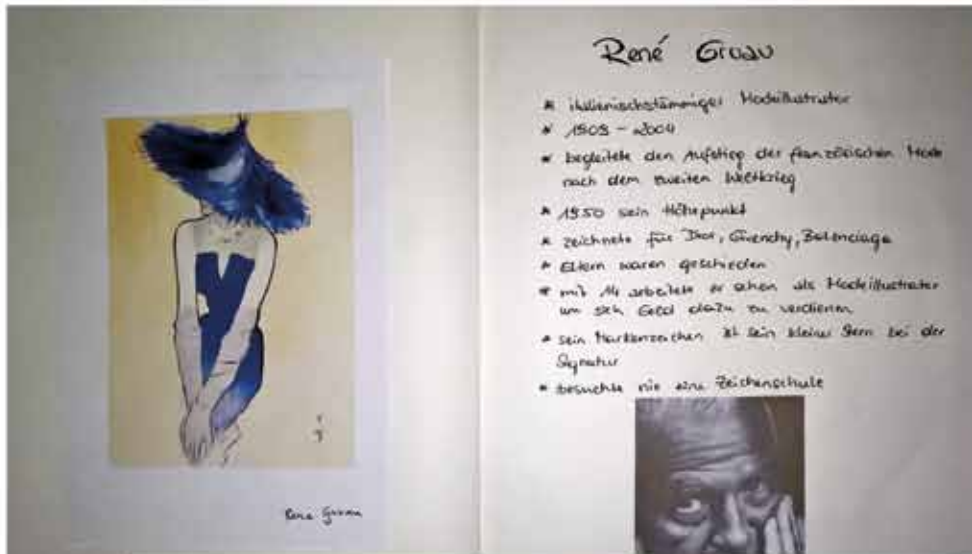 René Gruau
* italienischstämmiger Modeillustrator
* 1909 - 2004
* begleitete den Aufstieg der französischen Mode
nach dem zweiten Weltkrieg
* 1950 sein Höhepunkt
* zeichnete für Dior, Givenchy, Balenciaga
* Eltern waren geschieden
* mit 14 arbeitete er schon als Modeillustrator
um sich Geld dazu zu verdienen
* sein Markenzeichen ist sein kleiner Stern bei der
Signatur
* besuchte nie eine Zeichenschule
Rene Gruau